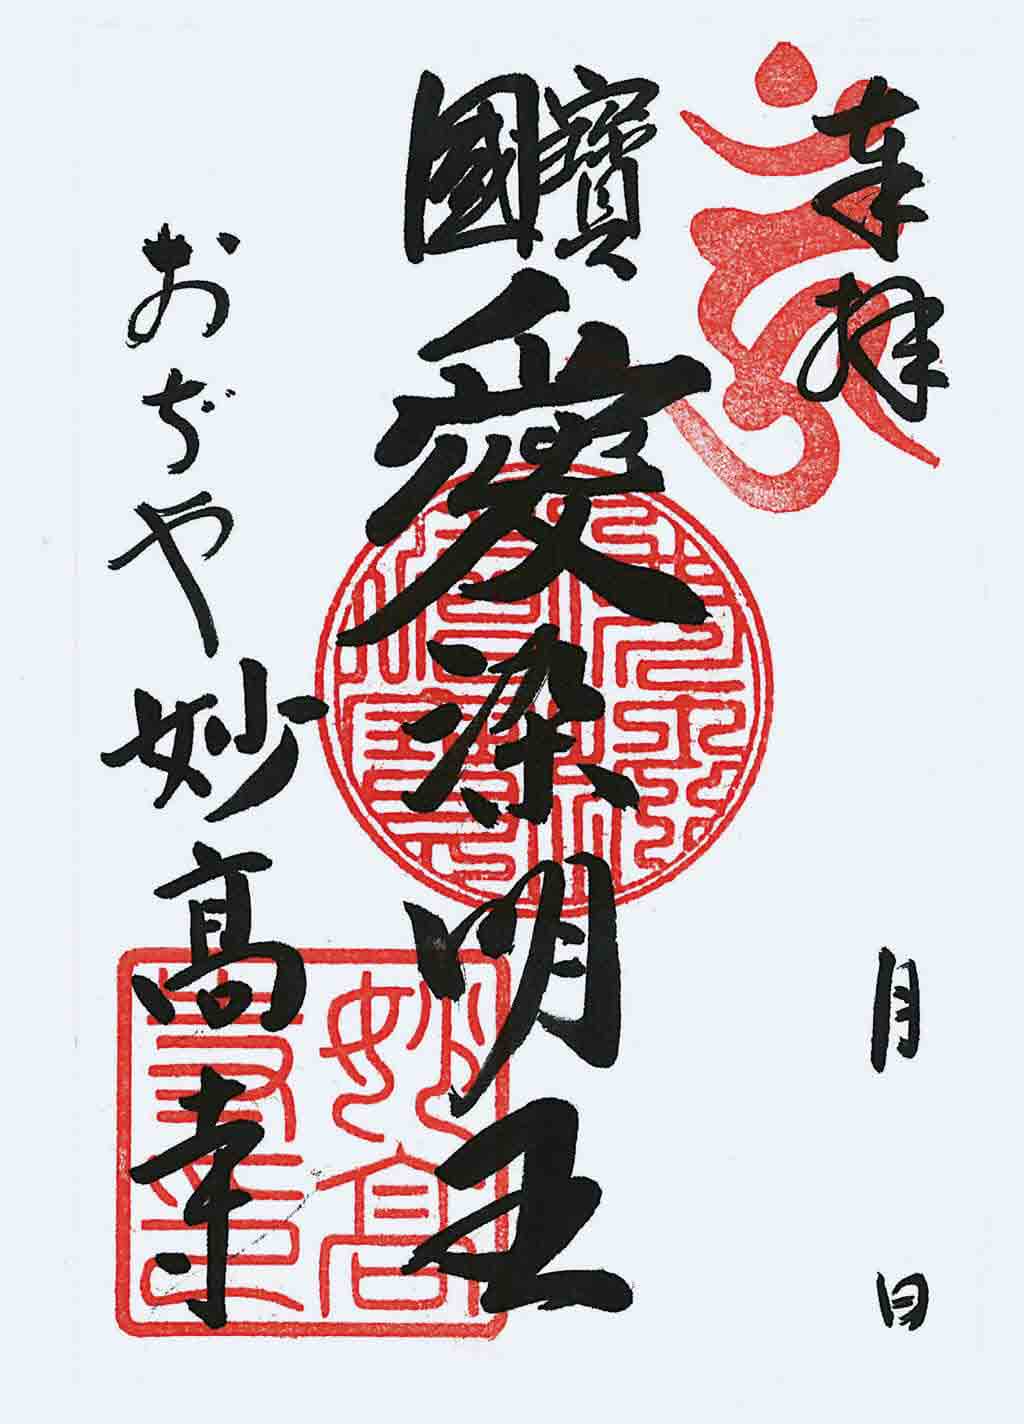 奉拝
月 日
國寶
愛染明王
おぢや 妙高寺
妙高寺印